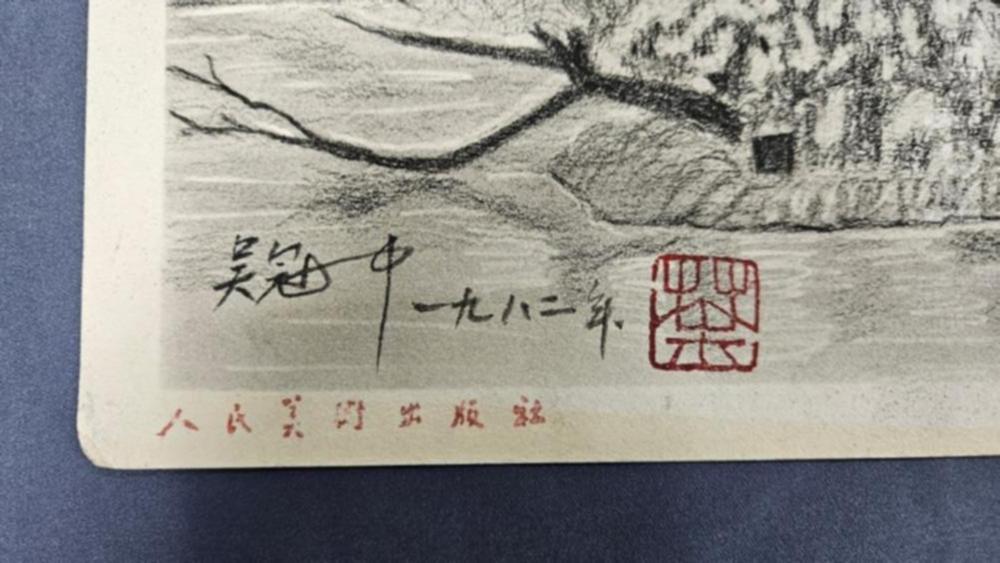 吴冠中
一九八二年
人民美術出版社